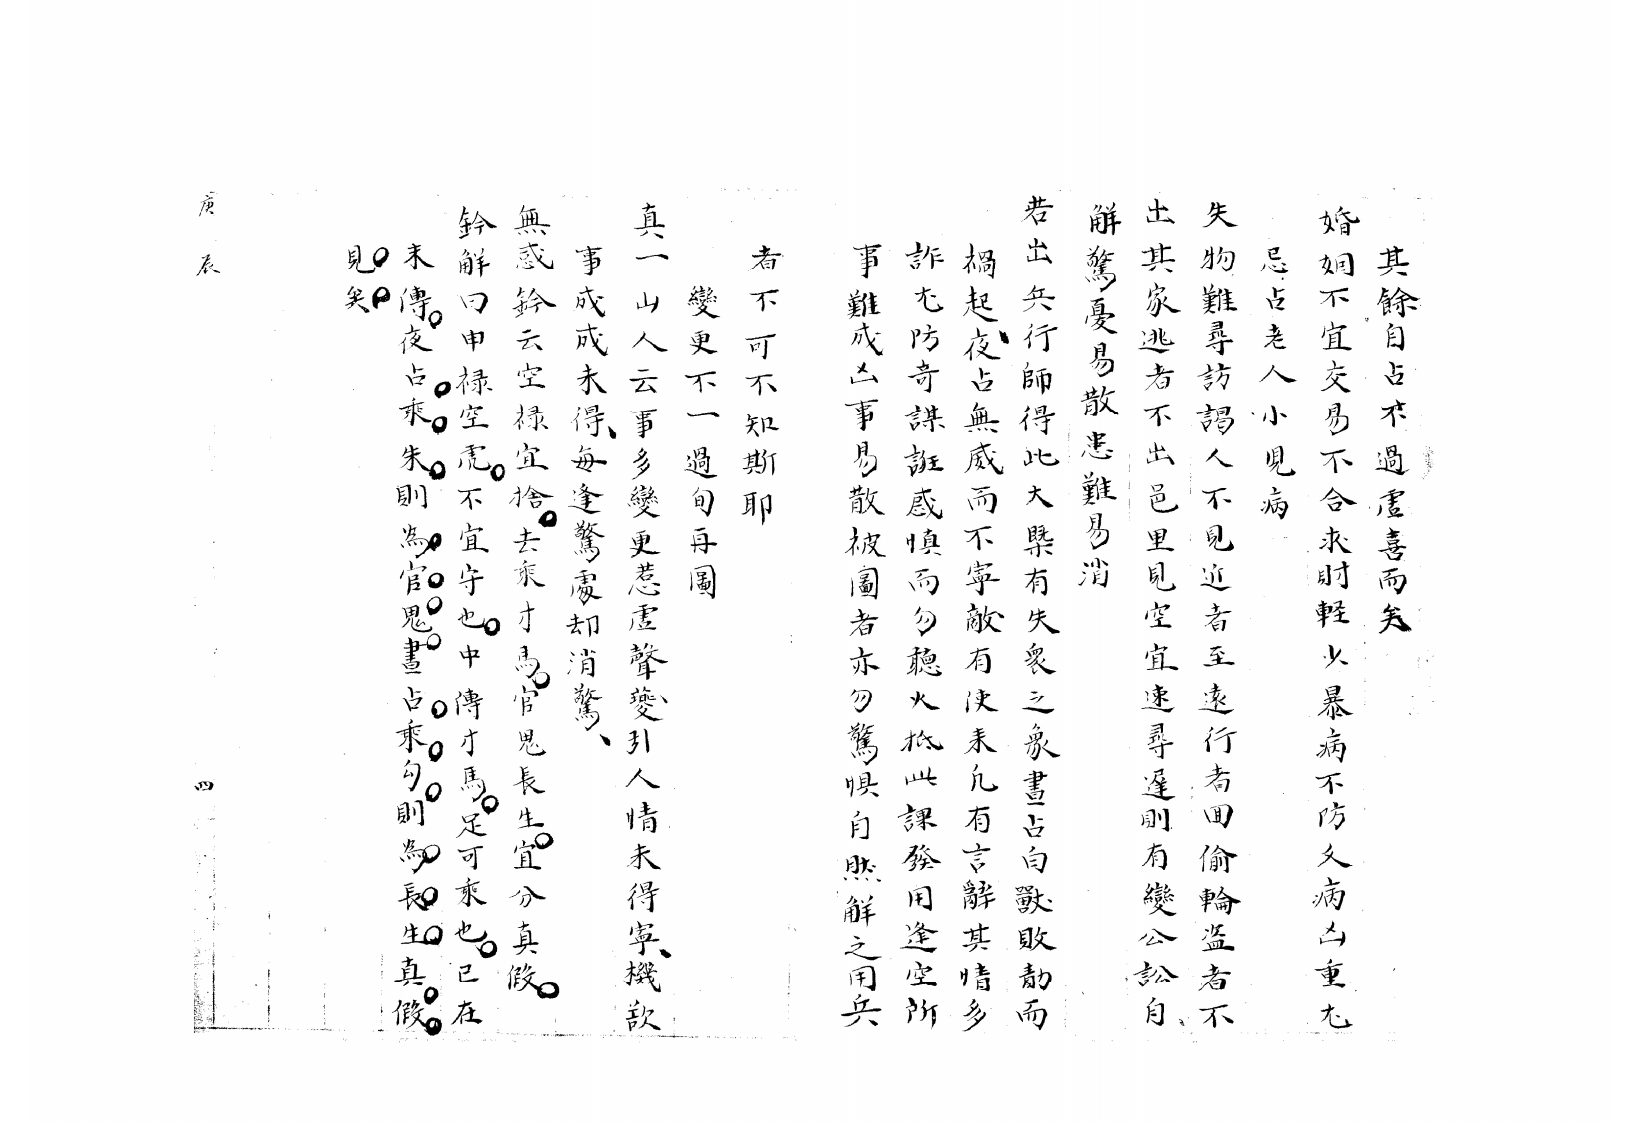 其餘自占不過虛喜而矣
婚姻不宜交易不合求財輕少暴病不防久病凶重尤
忌占老人小児病
失物難尋訪謁人不見近者至遠行者回偷輪盗者不
出其家逃者不出邑里見空宜速尋遲則有變公訟自
解驚憂易散患難易消
若出兵行師得此大槩有失衆之象晝占白獸敗動而
禍起夜占無威而不寧敵有使来凢有言辭其情多
詐尤防奇謀誑惑慎而勿聽大抵此課發用逢空所
事難成凶事易散被圖者亦勿驚惧自然解之用兵
者不可不知斯耶
變更不一過旬再圖
真一山人云事多變更惹虛聲變引人情未得寧機欲
事成成未得每逢驚處却消驚
無惑鈐云空禄宜捨去乘才馬官鬼長生宜分真假
鈐解曰申禄空虎不宜守也中傳才馬足可乘也已在
末傳夜占乘朱則為官鬼晝占乘勾則為長生真假
見矣
庚辰
四